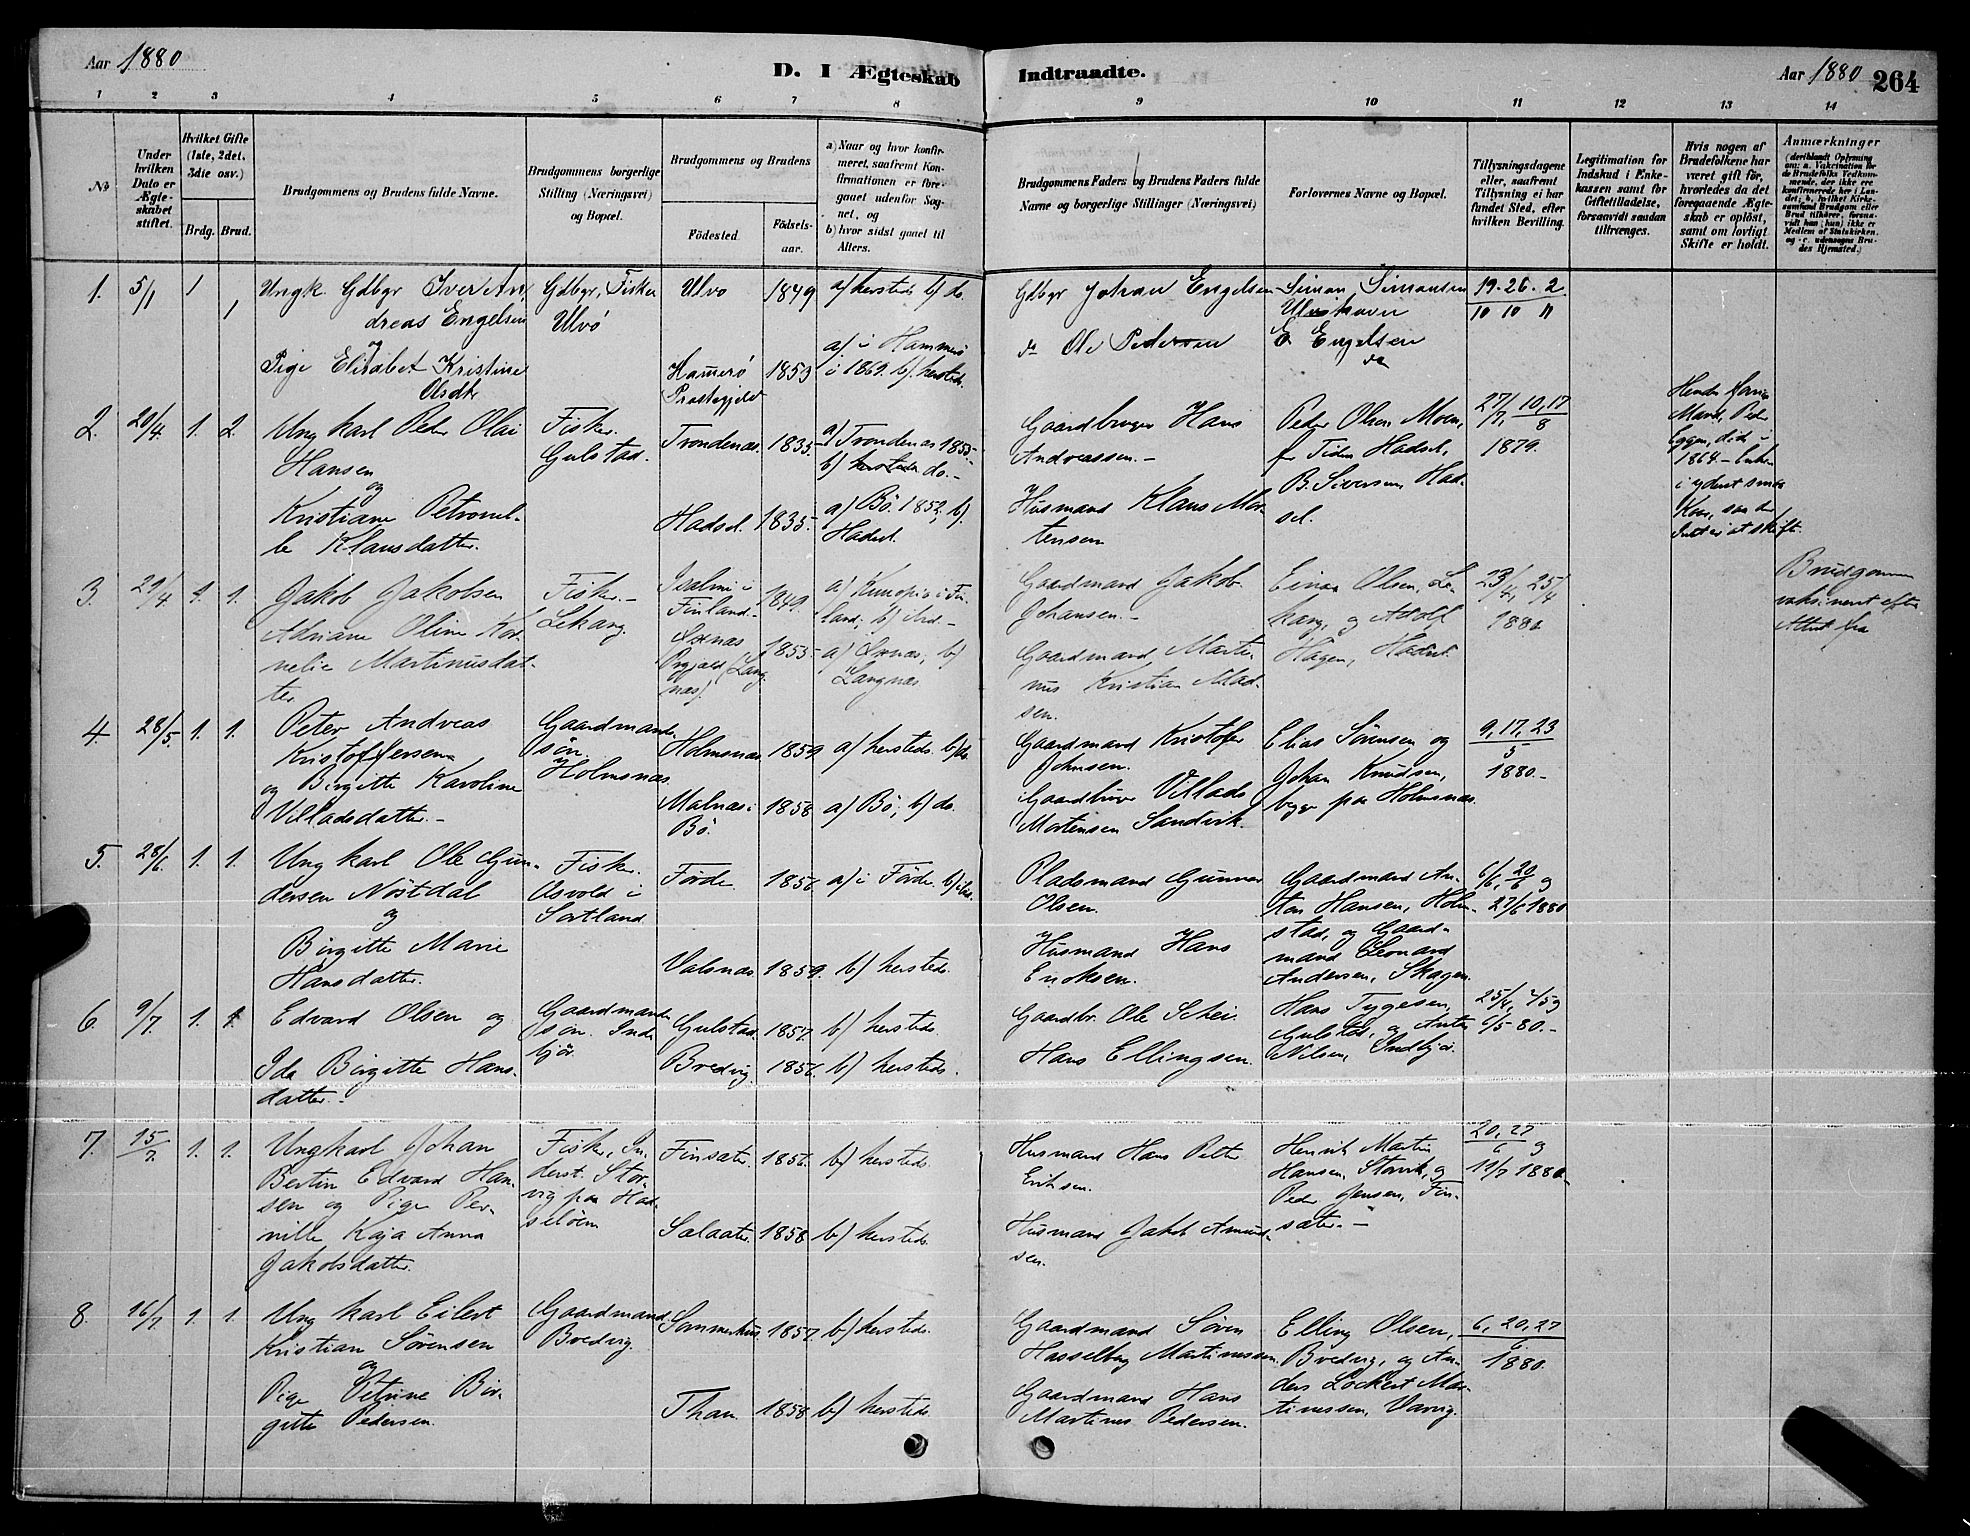 Aar 1880
D. I Ægteskab Indtraadte.
Aar 1880
264
1 2 3 4 5 6 7 8 9 10 11 12 13 14
No
Under hvilken Dato er Ægteskabet stiftet.
Hvilket Gifte (1ste, 2det, 3die osv.)
Brdg. Brud.
Brudgommens og Brudens fulde Navne.
Brudgommens borgerlige Stilling (Næringsvei) og Bopæl.
Brudgommens og Brudens
Fødested. Fødselsaar.
a) Naar og hvor konfirmeret, saafremt Konfirmationen er foregaaet udenfor Sognet, og
b) hvor sidst gaaet til Alters.
Brudgommens Faders og Brudens Faders fulde Navne og borgerlige Stillinger (Næringsvei)
Forlovernes Navne og Bopæl.
Tillysningsdagene eller, saafremt Tillysning ei har fundet Sted, efter hvilken Bevilling.
Legitimation for Indskud i Enkekassen samt for Giftetilladelse, forsaavidt saadan tiltrænges.
Hvis nogen af Brudefolkene har været gift før, hvorledes da det foregaaende Ægteskab er opløst, samt om lovligt Skifte er holdt.
Anmærkninger
(deriblandt Oplysning om: a. Vaccination for de Brudefolks Vedkommende, der ikke ere konfirmerede her i Landet; b. hvilket Kirkesamfund Brudgom eller Brud tilhører, forsaavidt han (hun) ikke er Medlem af Statskirken, og c. udensogns Brudes Hjemsted.)
1. 5/1 1 1
Ungk. Gdbgr Iver Andreas Engelsen
og
Pige Elisabet Kristine Olsdtr
Gdbgr, Fisker Ulvø
Ulvø 1849 a) hersteds b) do.
Hamerø Præstegjeld 1853 a) i Hammerø i 1869. b) hersteds.
Gdbgr Johan Engelsen
do Ole Pedersen
Simon Simonsen
E Engelsen do
19. 26. 2
10 10 11
2. 20/4. 1. 2.
Ungkarl Peder Olai Hansen
og
Kristiane Petronelle Klausdatter.
Fisker. Gulstad.
Trondenæs. 1835. a) Trondenæs 1853. b) do.
Hadsel. 1835. a) Bø. 1852, b) Hadsel.
Gaardbruger Hans Andreassen.
Husmand Klaus Mortensen
Peder Olsen Moen, f Tiden Hadsel,
B. Siversen, Hadsel.
27/7, 10, 17/8 1879.
Hendes forrige Mand, Peder Eggen, død i 1864
3. 29/4 1. 1.
Jakob Jakobsen
Adriane Oline Kornelie Martinusdatter
Fisker. Lekang.
Isalmi i Finland. 1849. a) Kuopio i Finland; b)
Øxnæs Prgjæld (Langnæs). 1855. a) Øxnæs; b) Langnæs
Gaardmand Jakob Johansen.
Gaardmand Martinus Kristian Madsen.
Einar Olsen, Lekang, og Adolf Hagen, Hadsel.
23/4, 25/4 1880
Brudgommen
4. 28/5. 1. 1.
Peter Andreas Kristoffersen
og Birgitte Karoline Villadsdatter.
Gaardmandssøn. Holmsnæs.
Holmsnæs. 1859 a) hersteds. b) do.
Malnæs i Bø. 1858 a) Bø; b) do.
Gaardmand Kristofer Johnsen.
Gaardbruger Villads Mortensen Sandvik.
Elias Sørensen og Johan Knudsen, begge paa Holmsnæs.
9, 17, 23/5 1880.
5. 28/6. 1. 1.
Ungkarl Ole Gundersen Nøstdal
og
Birgitte Marie Hansdatter.
Fisker. Osvold i Sortland.
Førde. 1856. a) i Førde. b) i do.
Valsnæs. 1859. b) hersteds.
Pladsmand Gunnar Olsen.
Husmand Hans Eriksen.
Gaardmand Anton Hansen, Holmstad, og Gaardmand Leonard Andersen, Skagen.
6/6, 20/6 og 27/6 1880
6. 9/7. 1. 1.
Edvard Olsen og
Ida Birgitte Hansdatter.
Gaardmandssøn. Indbjør.
Gulstad. 1857. b) hersteds.
Bredvig. 1856. b) hersteds.
Gaardbr. Ole Schei
Hans Ellingsen.
Hans Tygesen, Gulstad, og Anton Nilsen, Indbjør.
25/4, 4/5 og 6/5 80.
7. 15/7. 1. 1.
Ungkarl Johan Bertin Edvard Hansen og Pige Pernille Kaja Anna Jakobsdatter.
Fisker, Inderst. Storvig paa Hadseløen
Finsæter. 1856. b) hersteds.
Sælaater. 1858. b) hersteds.
Husmand Hans Petter Eriksen.
Husmand Jakob Amundsen.
Henrik Martin Hansen, Storvik, og Peder Jensen, Finsæter.
20, 27/6 og 11/7 1880.
8. 16/7. 1. 1.
Ungkarl Eilert Kristian Sørensen
og
Pige Petrine Birgitte Pedersen.
Gaardmand. Bredvig.
Sommerhus. 1857. b) hersteds.
Than. 1858. b) hersteds.
Gaardmand Søren Hasselberg Martinussen.
Gaardmand Hans Martinus Pedersen.
Elling Olsen, Bredvig, og Anders Lockert Martinussen, Varvig.
6, 20, 27/6 1880.